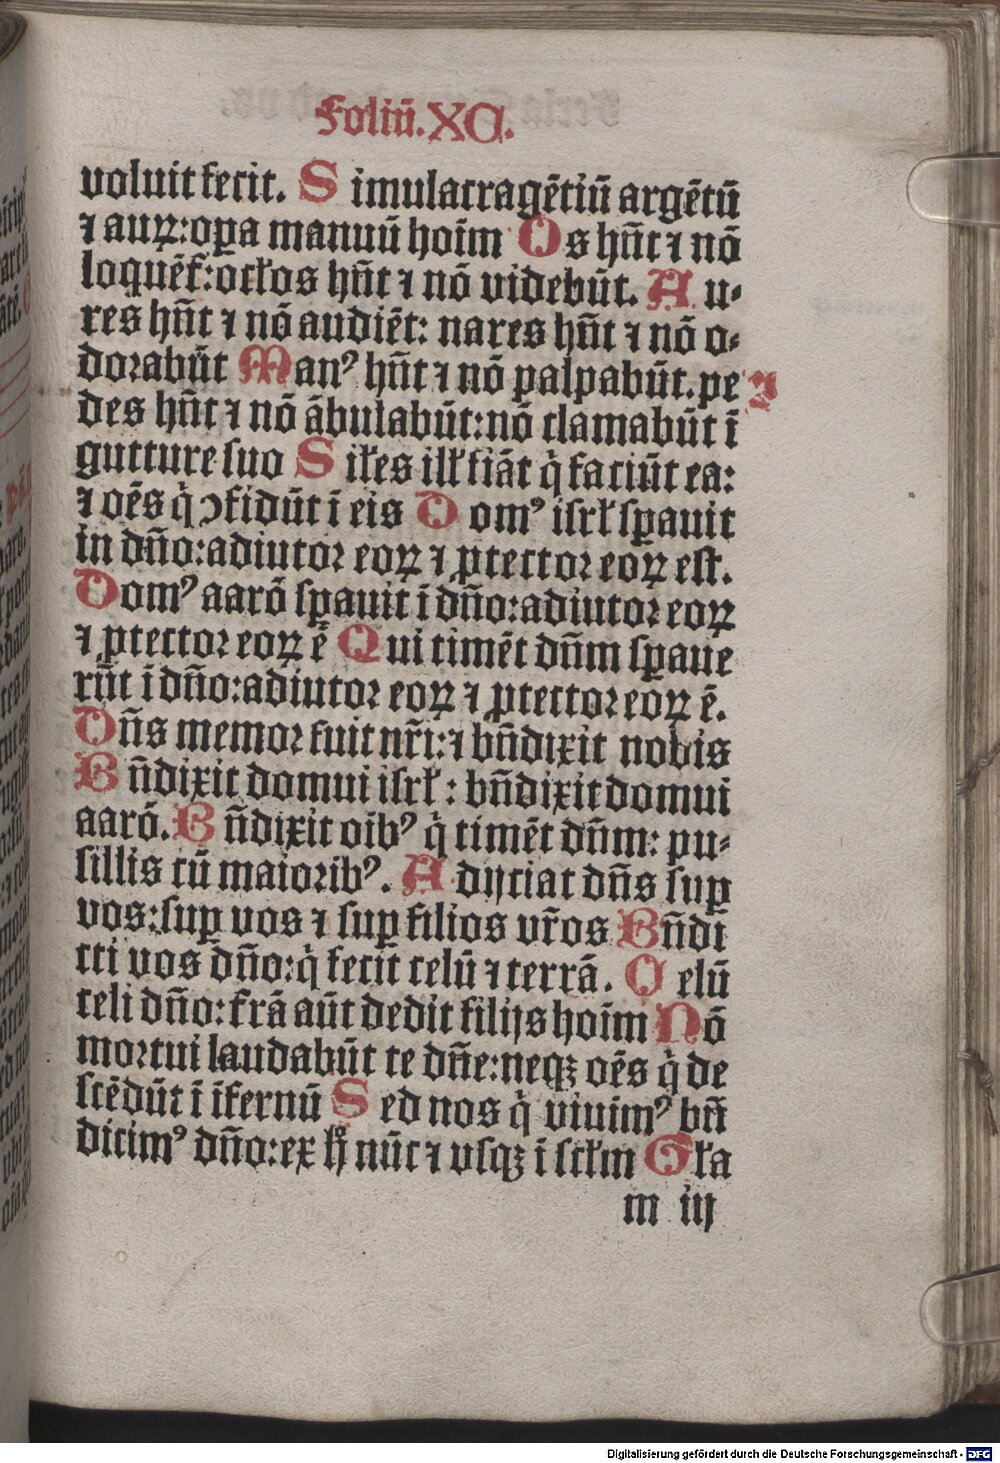 Foliū. XC.
voluit fecit. Simulacra gētiū argētū
⁊ auꝝ: oꝑa manuū hoīm Os hn̄t ⁊ nō
loquēt̄: ocl̓os hn̄t ⁊ nō videbūt. Au⸗
res hn̄t ⁊ nō audiēt: nares hn̄t ⁊ nō o⸗
dorabūt Manꝰ hn̄t ⁊ nō palpabūt. pe
des hn̄t ⁊ nō ābulabūt: nō clamabūt ī
gutture suo Sil̓es ill̓ fiāt q̇ faciūt ea:
⁊ oēs q̇ ↄfidūt ī eis Domꝰ isrl̓ sꝑauit
in dn̄o: adiutor eoꝝ ⁊ ꝓtector eoꝝ est.
Domꝰ aarō sꝑauit ī dn̄o: adiutor eoꝝ
⁊ ꝓtector eoꝝ ē Qui timēt dn̄m sꝑaue
rūt ī dn̄o: adiutor eoꝝ ⁊ ꝓtector eoꝝ ē.
Dn̄s memor fuit nr̄i: ⁊ bn̄dixit nobis
Bn̄dixit domui isrl̓: bn̄dixit domui
aarō. Bn̄dixit oībꝰ q̇ timēt dn̄m: pu⸗
sillis cū maioribꝰ. Adijciat dn̄s suꝑ
vos: suꝑ vos ⁊ suꝑ filios vr̄os Bn̄di
cti vos dn̄o: q̇ fecit celū ⁊ terrā. Celū
celi dn̄o: t̄rā aūt dedit filijs hoīm Nō
mortui laudabūt te dn̄e: neqꝫ oēs q̇ de
scēdūt ī īfernū Sed nos q̇ viuimꝰ bn̄
dicimꝰ dn̄o: ex ħ nūc ⁊ vsqꝫ ī scl̓m Gl̓a
m iij